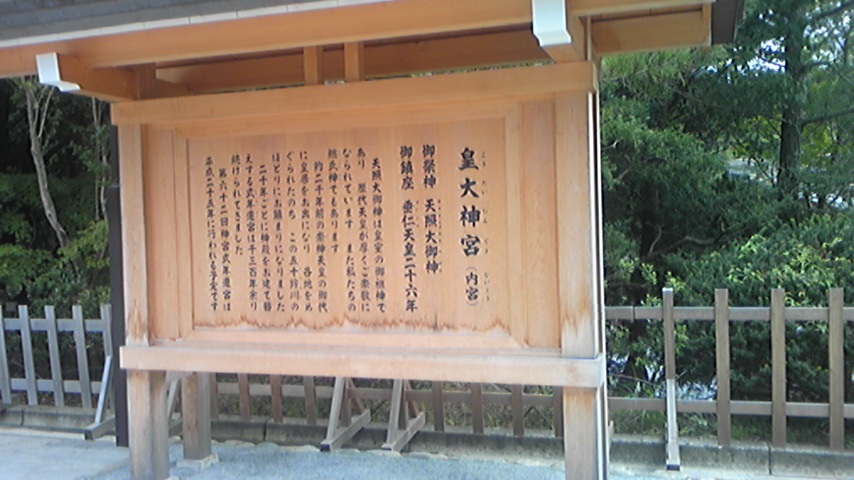 皇大神宮（内宮）
こうたいじんぐう（ないくう）
御祭神　天照大御神
御鎮座　垂仁天皇二十六年
天照大御神は皇室の御祖神で
あり　歴代天皇が厚くご崇敬に
なられています　また私たちの
総氏神でもあります
約二千年前の崇神天皇の御代
に皇居をお出になり　各地をめ
ぐられたのち　この五十鈴川の
ほとりにお鎮まりになりました
二十年ごとに神殿をお建て替
えする式年遷宮は千三百年余り
続けられてきました
第六十二回神宮式年遷宮は
平成二十五年に行われる予定です